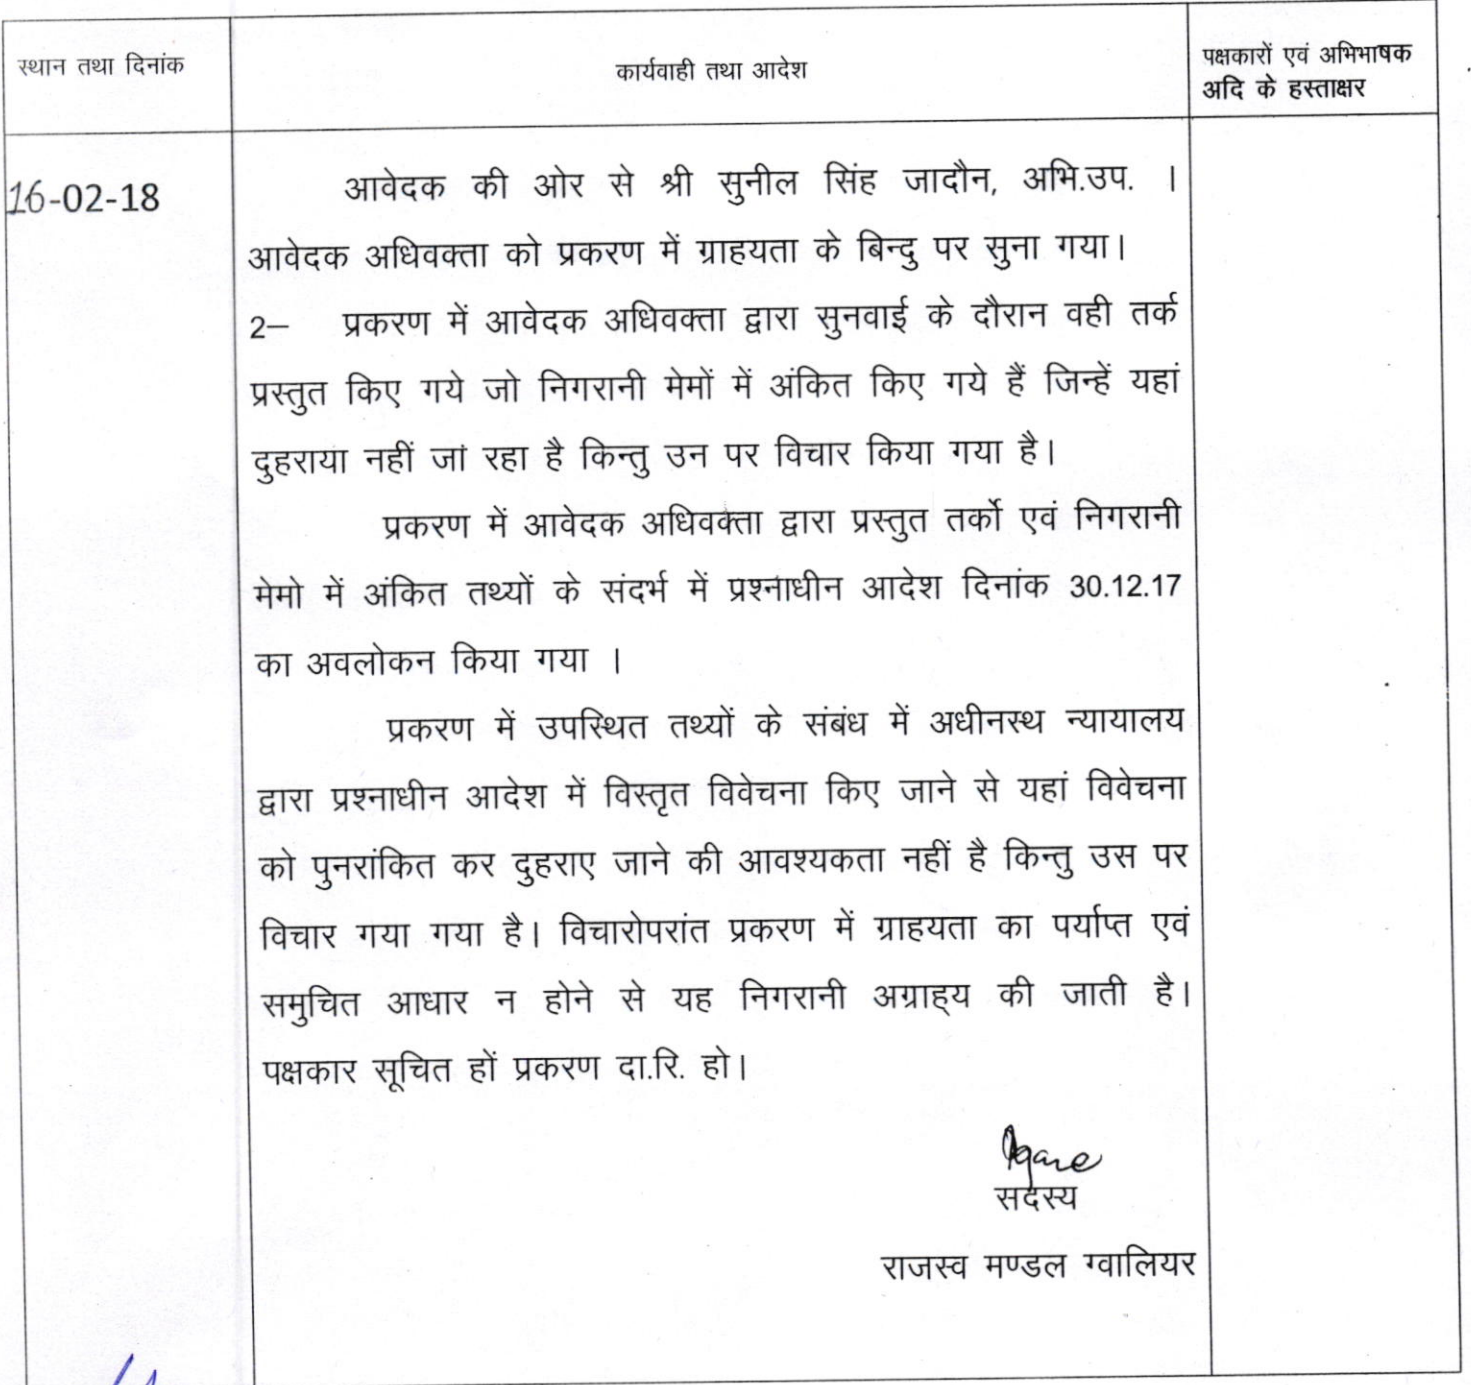 स्थान तथा दिनांक
कार्यवाही तथा आदेश
पक्षकारों एवं अभिभाषक
अदि के हस्ताक्षर
16-02-18
आवेदक की ओर से श्री सुनील सिंह जादौन, अभि.उप. ।
आवेदक अधिवक्ता को प्रकरण में ग्राहयता के बिन्दु पर सुना गया।
2— प्रकरण में आवेदक अधिवक्ता द्वारा सुनवाई के दौरान वही तर्क
प्रस्तुत किए गये जो निगरानी मेमों में अंकित किए गये हैं जिन्हें यहां
दुहराया नहीं जां रहा है किन्तु उन पर विचार किया गया है।
प्रकरण में आवेदक अधिवक्ता द्वारा प्रस्तुत तर्को एवं निगरानी
मेमो में अंकित तथ्यों के संदर्भ में प्रश्नाधीन आदेश दिनांक 30.12.17
का अवलोकन किया गया ।
प्रकरण में उपस्थित तथ्यों के संबंध में अधीनस्थ न्यायालय
द्वारा प्रश्नाधीन आदेश में विस्तृत विवेचना किए जाने से यहां विवेचना
को पुनरांकित कर दुहराए जाने की आवश्यकता नहीं है किन्तु उस पर
विचार गया गया है। विचारोपरांत प्रकरण में ग्राहयता का पर्याप्त एवं
समुचित आधार न होने से यह निगरानी अग्राह्य की जाती है।
पक्षकार सूचित हों प्रकरण दा.रि. हो।
सदस्य
राजस्व मण्डल ग्वालियर